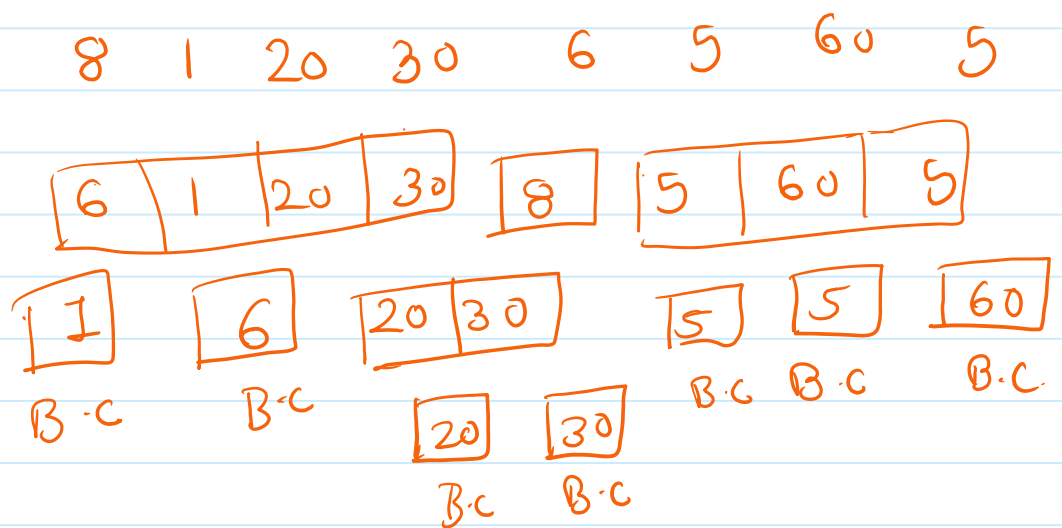 8 1 20 30 6 5 60 5
6 1 20 30 8 5 60 5
1 6 20 30 5 5 60
B.C B.C B.C B.C B.C.
20 30
B.C B.C